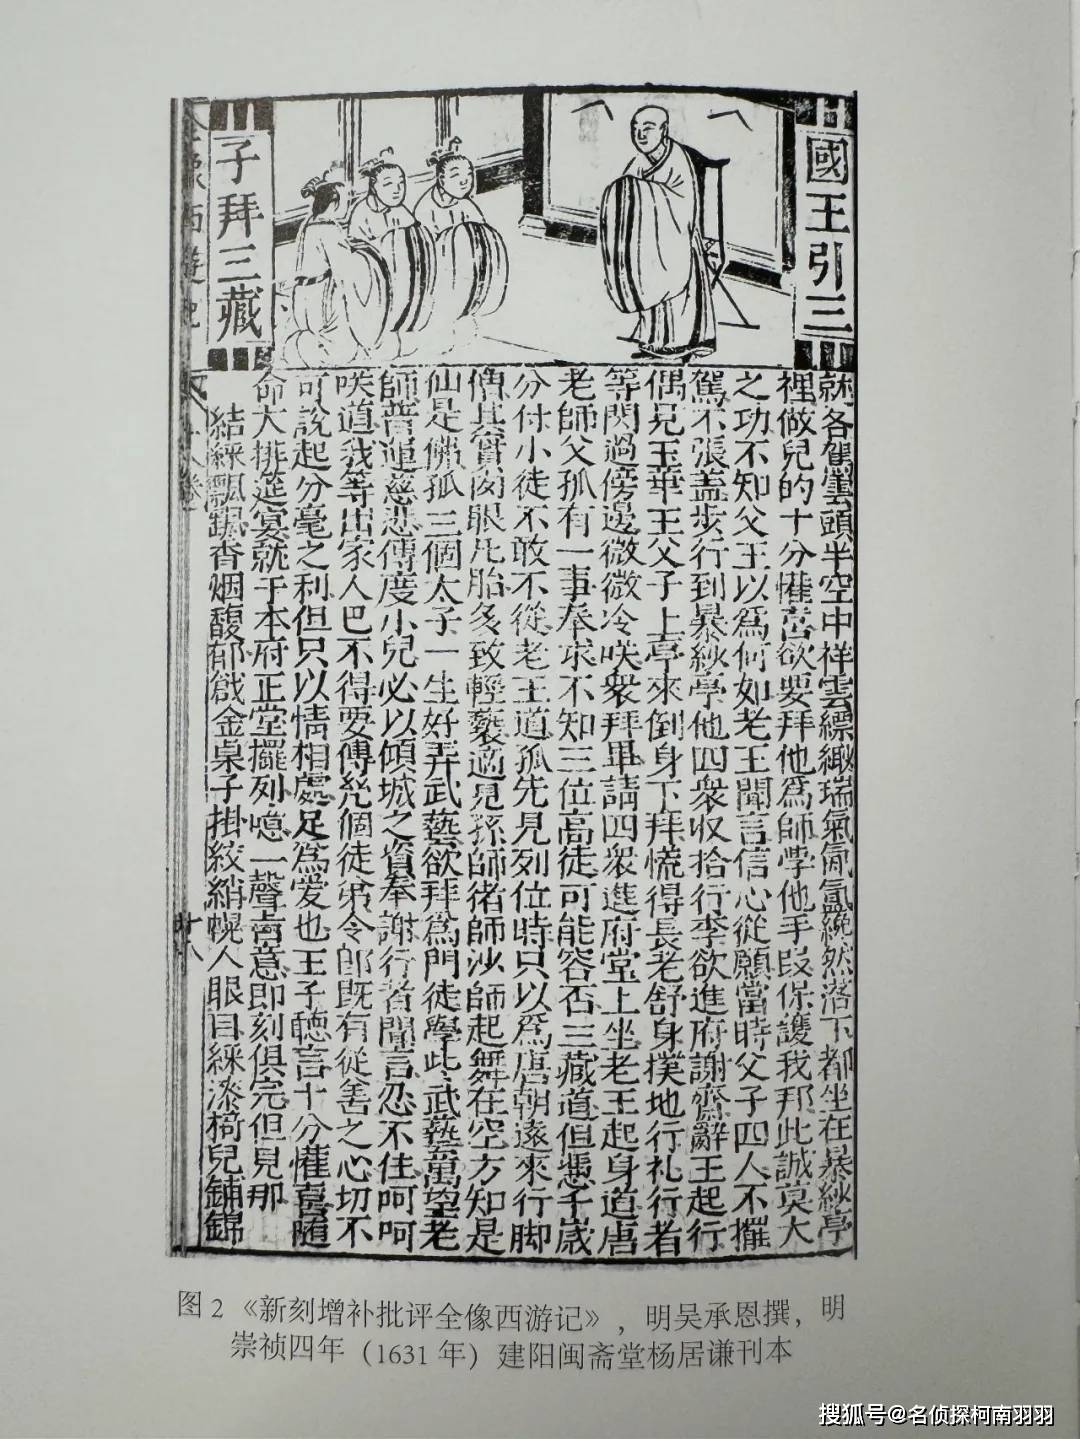 國王引三
子拜三藏
就各駕雲頭半空中祥雲縹緲瑞氣氤氳然落下都坐在暴紗亭
裡做兒的十分懽喜欲要拜他為師學他手段保護我邦此誠莫大
之功不知父王以為何如老王聞言信心從願當時父子四人不擺
駕不張盖步行到暴紗亭他四衆収拾行李欲進府謝齋辭王起行
偶見玉華王父子上亭來倒身下拜慌得長老舒身撲地行礼行者
等閃過傍邊微微冷咲衆拜畢請四衆進府堂上坐老王起身道唐
老師父孤有一事奉求不知三位高徒可能容否三藏道但慿千歲
分付小徒不敢不從老王道孤先見列位時只以為唐朝遠來行脚
僧其實肉眼凡胎多致輕褻適見孫師猪師沙師起舞在空方知是
仙是佛孤三個太子一生好弄武藝欲拜為門徒學此武藝萬望老
師普運慈悲傳度小兒必以傾城之資奉謝行者聞言忍不住呵呵
咲道我等出家人巴不得要傳幾個徒弟令郎既有從善之心切不
可說起分毫之利但只以情相處足為爱也王子聽言十分懽喜隨
命大排筵宴就于本府正堂擺列噫一聲㫖意即刻俱完但見那
結綵飄颻香烟馥郁戧金桌子掛絞綃幌人眼目綵漆椅兒鋪錦
西遊記
图 2 《新刻增补批评全像西游记》，明吴承恩撰，明
崇祯四年（1631 年）建阳闽斋堂杨居谦刊本
搜狐号@名侦探柯南羽羽